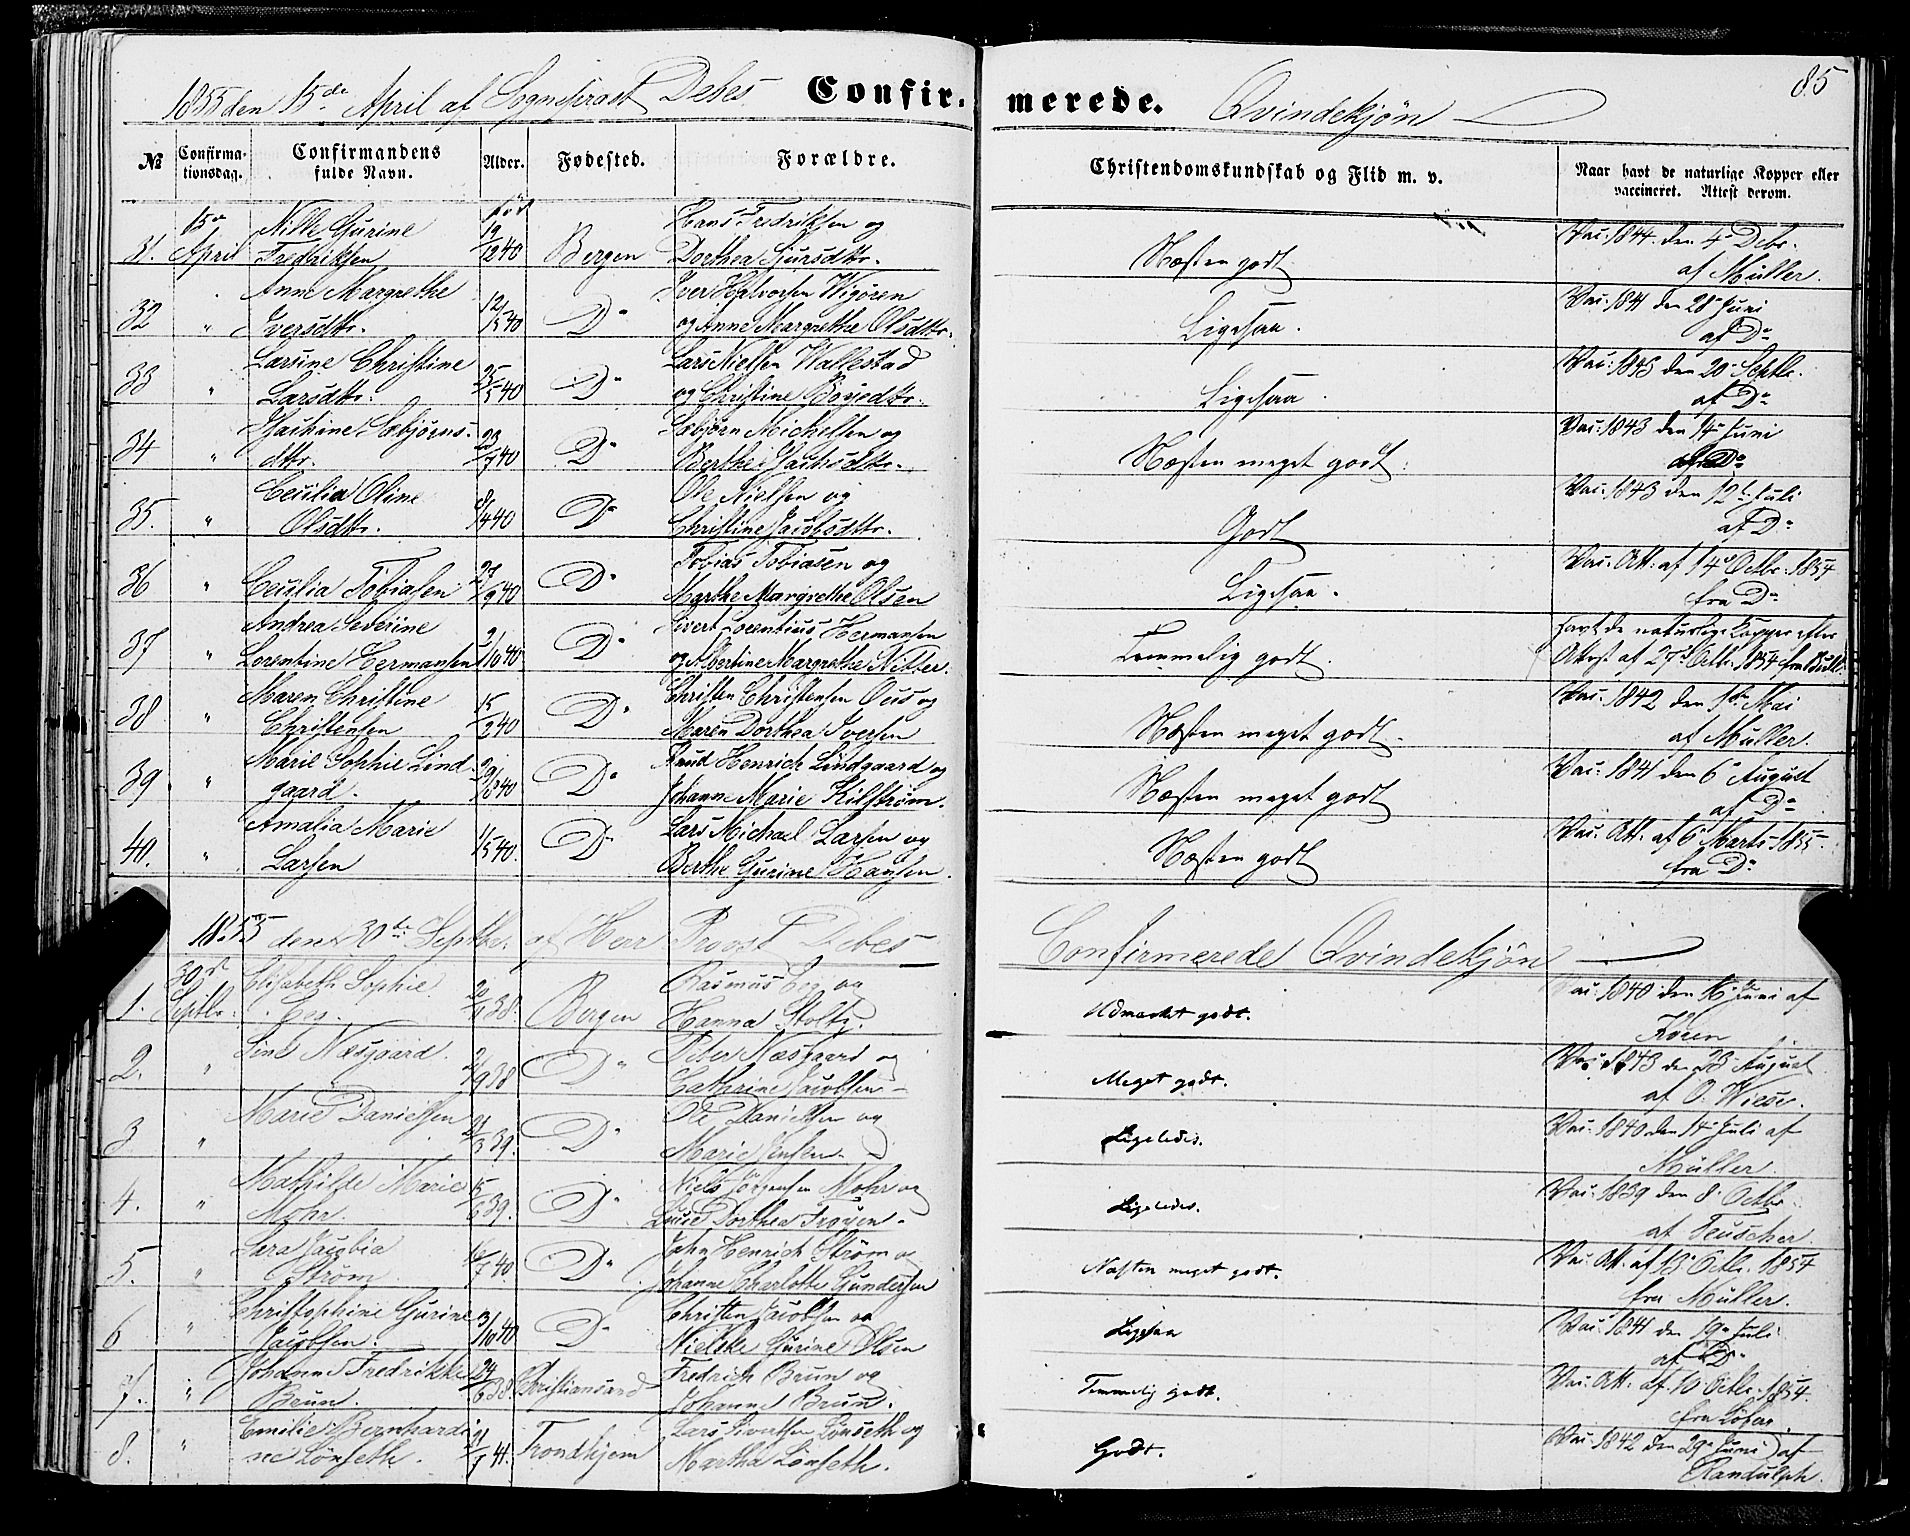 85
1855 den 15de April af Sogneprost Debes Confirmerede. Qvindekjøn
№ Confirmationsdag. Confirmandens fulde Navn. Alder. Fødested. Forældre. Christendomskundskab og Flid m. v. Naar havt de naturlige Kopper eller vaccineret. Attest derom.
31. 15de April Nille Gurine Fredriksen født 19/12 40 Bergen Hans Fredriksen og Dorthea Sjursdttr. Næsten godt Vac. 1844 den 4de Debr. af Müller.
32 " Anne Margrethe Iversdttr. 12/5 40 Do Iver Halvorsen Wigøren og Anne Margrethe Olsdttr. Ligesaa. Vac. 1841 den 28de Juni af Do
33 " Larsine Christine Larsdttr. 25/5 40 Do Lars Nielsen Wallestad og Christine Bøyedttr. Ligesaa. Vac. 1845 den 20de Septbr. af Do
34 " Jachine Sæbjørnsdttr. 23/7 40 Do Sæbjørn Michelsen og Berthe Jachsdttr. Næsten meget godt. Vac. 1843 den 14de Juni af Do
35. " Cecilia Oline Olsdttr. 8/4 40 Do Ole Nielsen og Christine Jacobsdttr. Godt Vac. 1843 den 12te Juli af Do
36 " Cecilia Tobiasen 27/9 40 Do Tobias Tobiasen og Marthe Margrethe Olsen Ligesaa. Vac. Att. af 14de Octbr. 1854 fra Do
37 " Andrea Severine Lorentine Hermansen 9/10 40 Do Sivert Lorentius Hermansen og Albertine Margrethe Nitter. Temmelig godt. havt de naturlige Kopper efter Attest af 27de Octbr. 1854 fra Müller
38 " Maren Christine Christensen 15/2 40 Do Christen Christensen Ous og Maren Dorthea Iversen Næsten meget godt. Vac. 1842 den 1ste Mai af Müller.
39 " Marie Sophie Lindgaard. 29/8 40 Do Knud Henrich Lindgaard og Johanne Marie Kilstrøm. Næsten meget godt Vac. 1841 den 6te August af Do
40. " Amalia Marie Larsen 11/5 40. Do Lars Michael Larsen og Berthe Gurine Hansen. Næsten godt Vac. Att. af 6te Marts 1855 fra Do
1855 den 30te Septbr. af Herr Provst Debes Confirmerede Qvindekjøn
1. 30te Septbr. Elisabeth Sophie Eeg. 20/9 38. Bergen Rasmus Eeg og Hanna Stoltz. Udmærket godt. Vac. 1840 den 16de Juni af Koren
2. " Sine Næsgaard. 21/9 38 Do Peter Næsgaard og Cathrine Jacobsen Meget godt. Vac. 1843 den 23de August af O. Wiese.
3 " Marie Danielsen 21/3 39. Do Ole Danielsen og Marie Jensen. Ligeledes. Vac. 1840 den 14de Juli af Müller.
4. " Mathilde Marie Mohr. 15/6 39. Do Niels Jørgensen Mohr og Lucie Dorthea Trøyen. Ligeledes. Vac. 1839 den 8de Octbr. af Teuscher.
5. " Sara Jacobia Strøm 16/7 40. Do John Henrich Strøm og Johanne Charlotte Gundersen Næsten meget godt. Vac. Att. af 13de Octbr. 1854 fra Müller.
6 " Christophine Gurine Jacobsen. 3/10 40 Do Christen Jacobsen og Nielske Gurine Olsen Ligesaa Vac. 1841 den 19de Juli af Do
7. " Johanne Fredrikke Brun. 24/6 38 Christiansand Fredrich Brun og Johanne Brun. Temmelig godt. Vac. Att. af 10 Octbr. 1854. fra
8. " Emilie Bernhardine Lønseth. 21/7 41. Trondhjem Lars Sivertsen Lønseth og Martha Lønseth. Godt. Vac. 1842 den 29de Juni af Randulph.